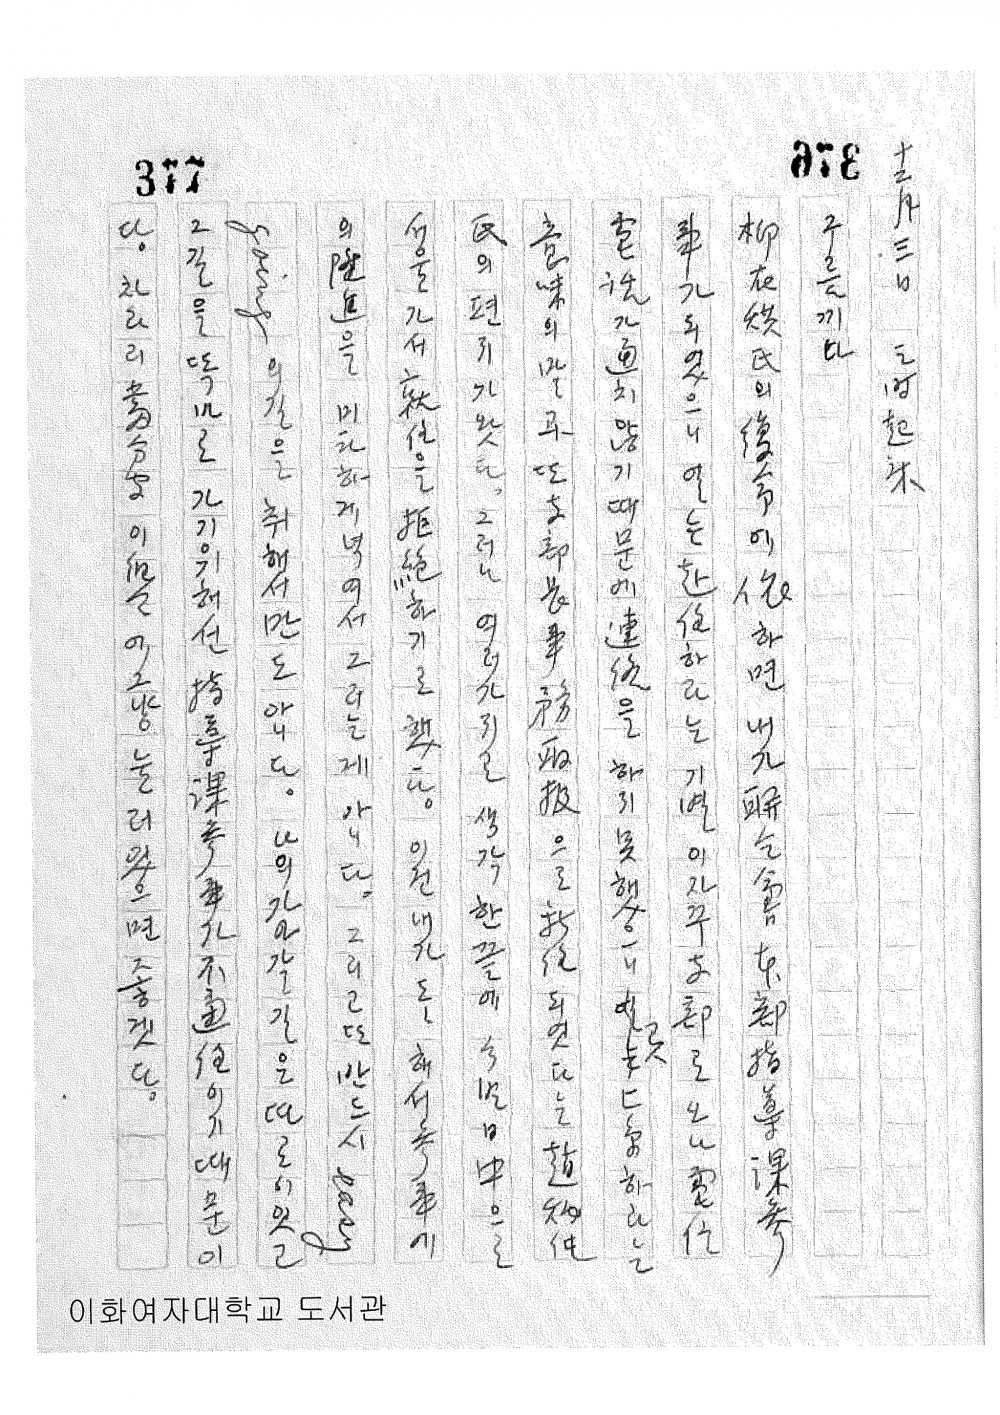 376
十二月 三日 六時起床
구름끼다
柳在烘氏의 復命에 依하면 내가 聯合會 本部 指導課參
事가 되였으니 얼는 赴任하라는 기별이 자꾸 支部로 오나 電信
電話가 通치 않기 때문에 連絡을 하지 못했으니 곳 上京하라는
意味의 말과 또 支部長事務取扱으로 新任되엿다는 趙
氏의 편지가 왓다. 그러나 여러가지로 생각한 끝에 今明日中으로
서울 가서 就任을 拒絶하기로 했다. 이전 내가 도 해서 參事에
의 陞進을 미타하게 녁여서 그러는게 아니다. 그리고 또 반드시 easy
going의 길을 취해서만도 아니다. 나의 가야 갈 길은 따로이 잇고
그 길을 똑바로 가기위해선 指導課參事가 不適任이기 때문이
다. 차라리 當分間 이곧에 그냥 눌러 잇으면 좋겟다.
377
이화여자대학교 도서관